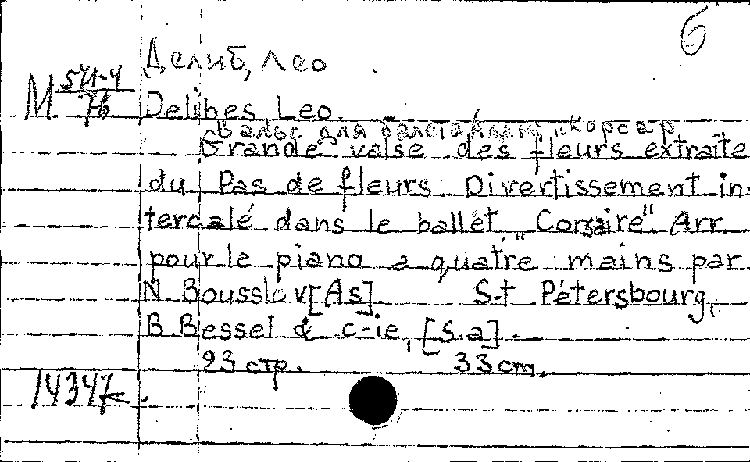 б
Делиб, Лео
М 541-4/76
Delibes Leo.
Вальс для балета "Корсар
Grande valse des fleurs extraite
du Pas de fleurs Divertissement in-
tercalé dans le ballet "Corsaire" Arr
pour le piano a quatre mains par
N Bousslov [As] S-t Pétersbourg,
B Bessel & C-ie, [S.a].
23 стр. 33 cm.
14347к.